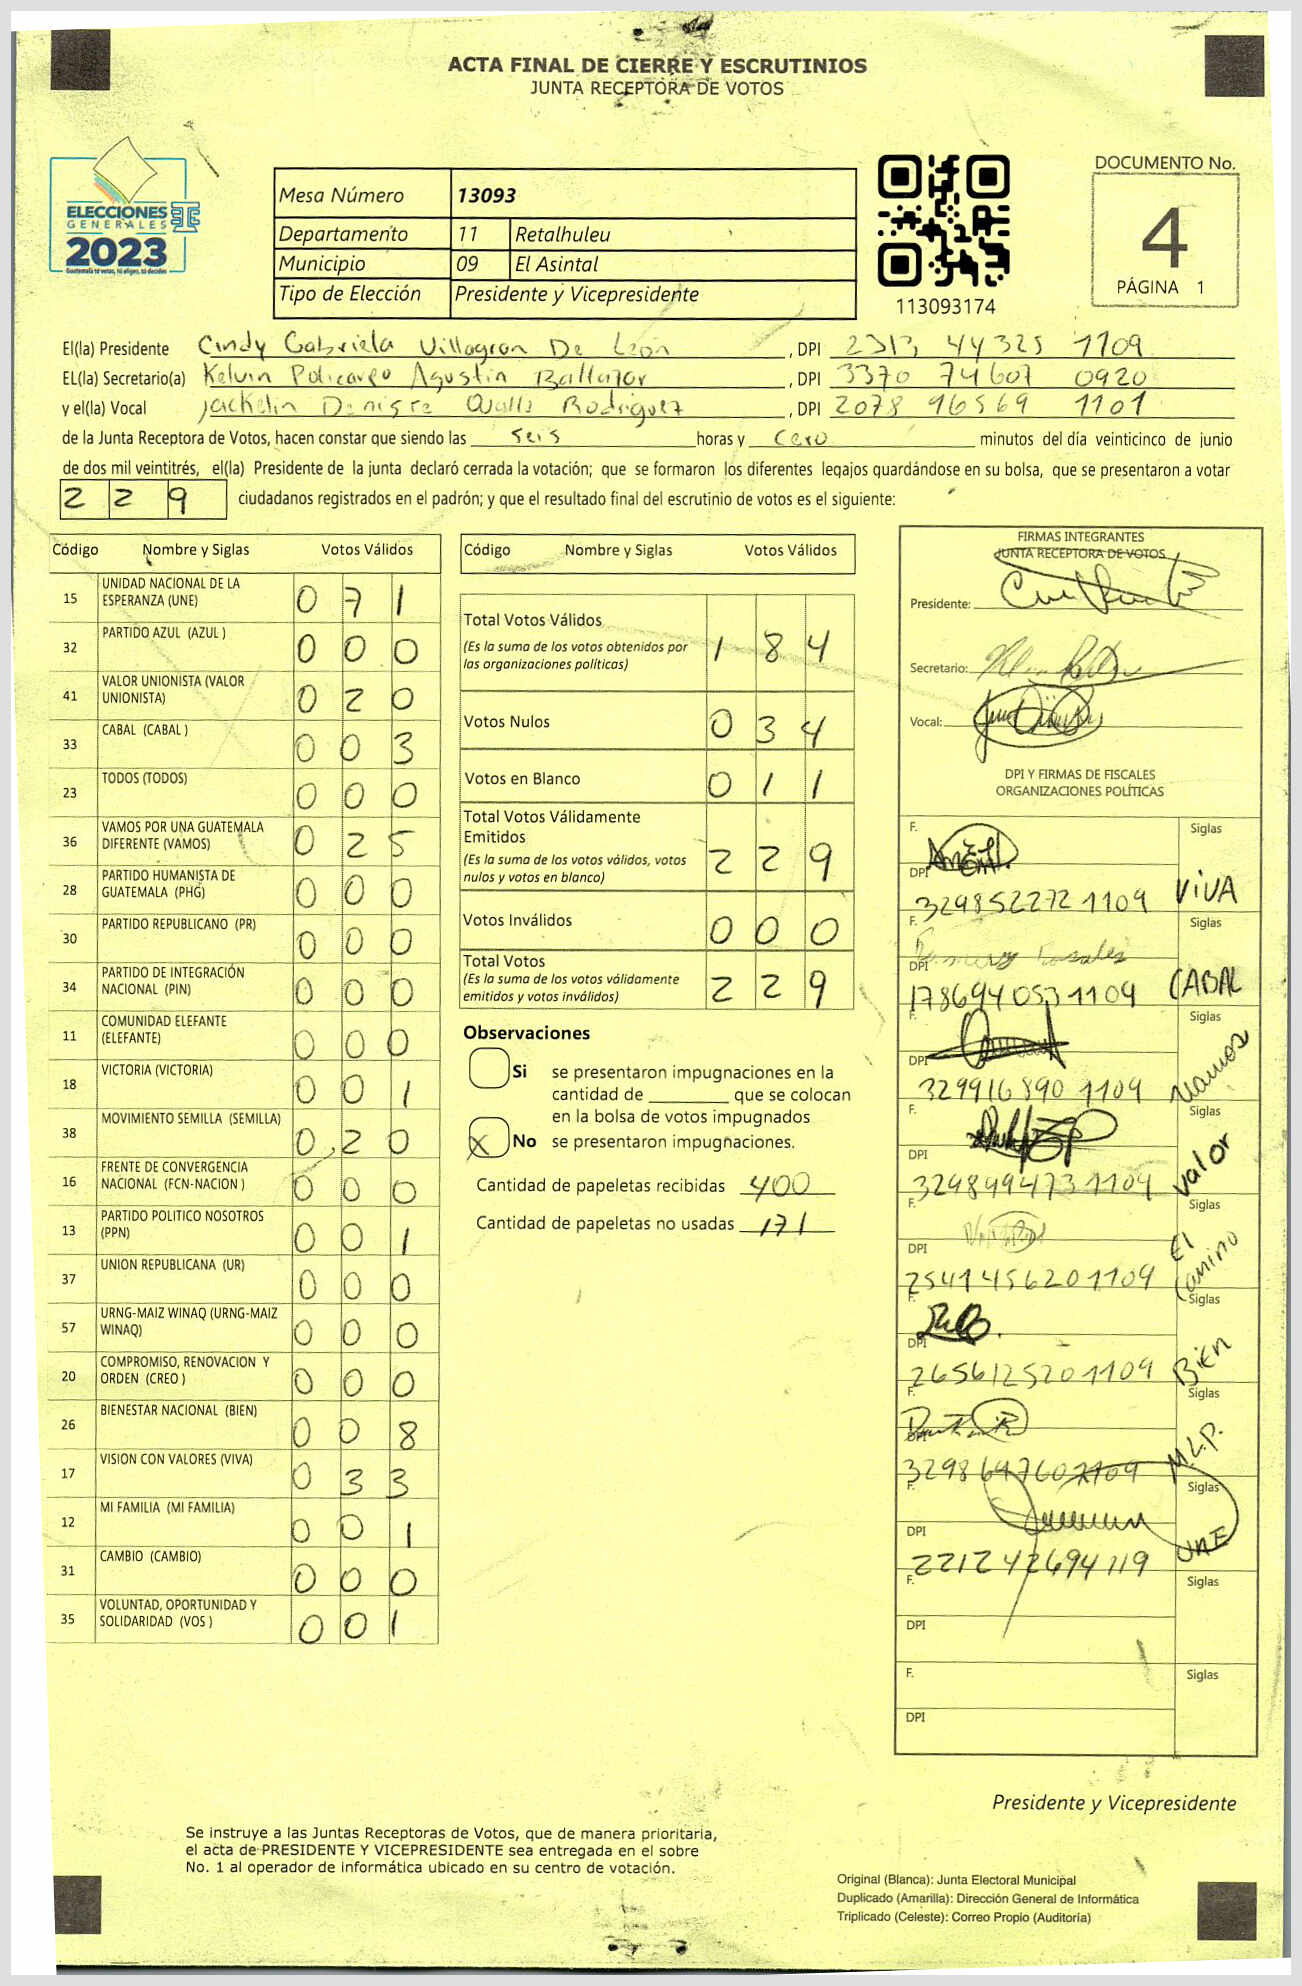 ACTA FINAL DE CIERRE Y ESCRUTINIOS
JUNTA RECEPTORA DE VOTOS
ELECCIONES
GENERALES
2023
Guatemala tú votas, tú eliges, tú decides
Mesa Número 13093
Departamento 11 Retalhuleu
Municipio 09 El Asintal
Tipo de Elección Presidente y Vicepresidente
113093174
DOCUMENTO No.
4
PÁGINA 1
El(la) Presidente Cindy Gabriela Villagran De León, DPI 2313 44325 1109
EL(la) Secretario(a) Kelvin Policarpo Agustin Baltazar, DPI 3370 74607 0920
y el(la) Vocal Jackelin Rodriguez, DPI 2078 96569 1101
de la Junta Receptora de Votos, hacen constar que siendo las seis horas y cero minutos del día veinticinco de junio
de dos mil veintitrés, el(la) Presidente de la junta declaró cerrada la votación; que se formaron los diferentes legajos guardándose en su bolsa, que se presentaron a votar
229 ciudadanos registrados en el padrón; y que el resultado final del escrutinio de votos es el siguiente:
Código Nombre y Siglas Votos Válidos
15 UNIDAD NACIONAL DE LA ESPERANZA (UNE) 0 7 1
32 PARTIDO AZUL (AZUL ) 0 0 0
41 VALOR UNIONISTA (VALOR UNIONISTA) 0 2 0
33 CABAL (CABAL ) 0 0 3
23 TODOS (TODOS) 0 0 0
36 VAMOS POR UNA GUATEMALA DIFERENTE (VAMOS) 0 2 5
28 PARTIDO HUMANISTA DE GUATEMALA (PHG) 0 0 0
30 PARTIDO REPUBLICANO (PR) 0 0 0
34 PARTIDO DE INTEGRACIÓN NACIONAL (PIN) 0 0 0
11 COMUNIDAD ELEFANTE (ELEFANTE) 0 0 0
18 VICTORIA (VICTORIA) 0 0 1
38 MOVIMIENTO SEMILLA (SEMILLA) 0 2 0
16 FRENTE DE CONVERGENCIA NACIONAL (FCN-NACION ) 0 0 0
13 PARTIDO POLITICO NOSOTROS (PPN) 0 0 1
37 UNION REPUBLICANA (UR) 0 0 0
57 URNG-MAIZ WINAQ (URNG-MAIZ WINAQ) 0 0 0
20 COMPROMISO, RENOVACION Y ORDEN (CREO ) 0 0 0
26 BIENESTAR NACIONAL (BIEN) 0 0 8
17 VISION CON VALORES (VIVA) 0 3 3
12 MI FAMILIA (MI FAMILIA) 0 0 1
31 CAMBIO (CAMBIO) 0 0 0
35 VOLUNTAD, OPORTUNIDAD Y SOLIDARIDAD (VOS ) 0 0 1
Código Nombre y Siglas Votos Válidos
Total Votos Válidos 1 8 4
(Es la suma de los votos obtenidos por
las organizaciones políticas)
Votos Nulos 0 3 4
Votos en Blanco 0 1 1
Total Votos Válidamente
Emitidos 2 2 9
(Es la suma de los votos válidos, votos
nulos y votos en blanco)
Votos Inválidos 0 0 0
Total Votos 2 2 9
(Es la suma de los votos válidamente
emitidos y votos inválidos)
Observaciones
Si se presentaron impugnaciones en la
cantidad de ________ que se colocan
en la bolsa de votos impugnados
X No se presentaron impugnaciones.
Cantidad de papeletas recibidas 400
Cantidad de papeletas no usadas 171
FIRMAS INTEGRANTES
JUNTA RECEPTORA DE VOTOS
Presidente:
Secretario:
Vocal:
DPI Y FIRMAS DE FISCALES
ORGANIZACIONES POLÍTICAS
F. Siglas
DPI 329852272 1109 VIVA
F. Siglas
DPI 178694053 1109 CABAL
F. Siglas
DPI 329916890 1109 Vamos
F. Siglas
DPI 329849473 1109 Valor
F. Siglas
DPI 254145620 1109 El Camino
F. Siglas
DPI 265612520 1109 Bien
F. Siglas
DPI 329864760 1109 M.L.P.
F. Siglas
DPI 221242694 119 UNE
F. Siglas
DPI
F. Siglas
DPI
Presidente y Vicepresidente
Se instruye a las Juntas Receptoras de Votos, que de manera prioritaria,
el acta de PRESIDENTE Y VICEPRESIDENTE sea entregada en el sobre
No. 1 al operador de informática ubicado en su centro de votación.
Original (Blanca): Junta Electoral Municipal
Duplicado (Amarilla): Dirección General de Informática
Triplicado (Celeste): Correo Propio (Auditoría)